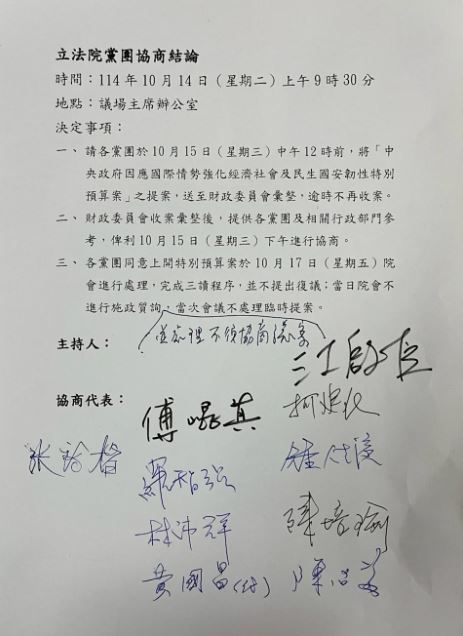 立法院黨團協商結論
時間：114年10月14日（星期二）上午9時30分
地點：議場主席辦公室
決定事項：
一、請各黨團於10月15日（星期三）中午12時前，將「中
央政府因應國際情勢強化經濟社會及民生國安韌性特別
預算案」之提案，送至財政委員會彙整，逾時不再收案。
二、財政委員會收案彙整後，提供各黨團及相關行政部門參
考，俾利10月15日（星期三）下午進行協商。
三、各黨團同意上開特別預算案於10月17日（星期五）院
會進行處理，完成三讀程序，並不提出復議；當日院會不
進行施政質詢，當次會議不處理臨時提案。
並處理不須協商議案
主持人：
江啟臣
協商代表：
傅崐萁
柯建銘
羅智強
鍾佳濱
林沛祥
陳培瑜
黃國昌